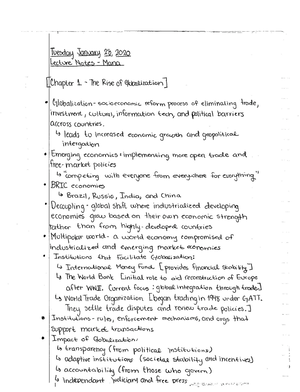 Tuesday January 28, 2020
Lecture Notes - Mana
[Chapter 1 - The Rise of Globalization]
• Globalization - socioeconomic reform process of eliminating trade,
investment, cultural, information tech, and political barriers
accross countries.
↳ leads to increased economic growth and geopolitical
intergation
• Emerging economies - implementing more open trade and
free-market policies
↳ "competing with everyone from everywhere for everything"
• BRIC economies
↳ Brazil, Russia, India, and China
• Decoupling - global shift where industrialized developing
economies grow based on their own economic strength
rather than from highly-developed countries
• Multipolar world - a world economy compromised of
industrialized and emerging market economies
• Institutions that facilitate Globalization:
↳ International Money Fund [provides financial stability]
↳ The World Bank Limited role and reconstruction of Europe
after WWII. Current focus: global integration through trade]
↳ World Trade Organization [began trading in 1948 under GATT.
They settle trade disputes and review trade policies.]
• Institutions - rules, enforcement mechanisms, and orgs that
support market transactions
• Impact of Globalization:
↳ transparency (from political institutions)
↳ adaptive institutions (societal stability and incentives)
↳ accountability (from those who govern)
↳ Independent judiciary and free press